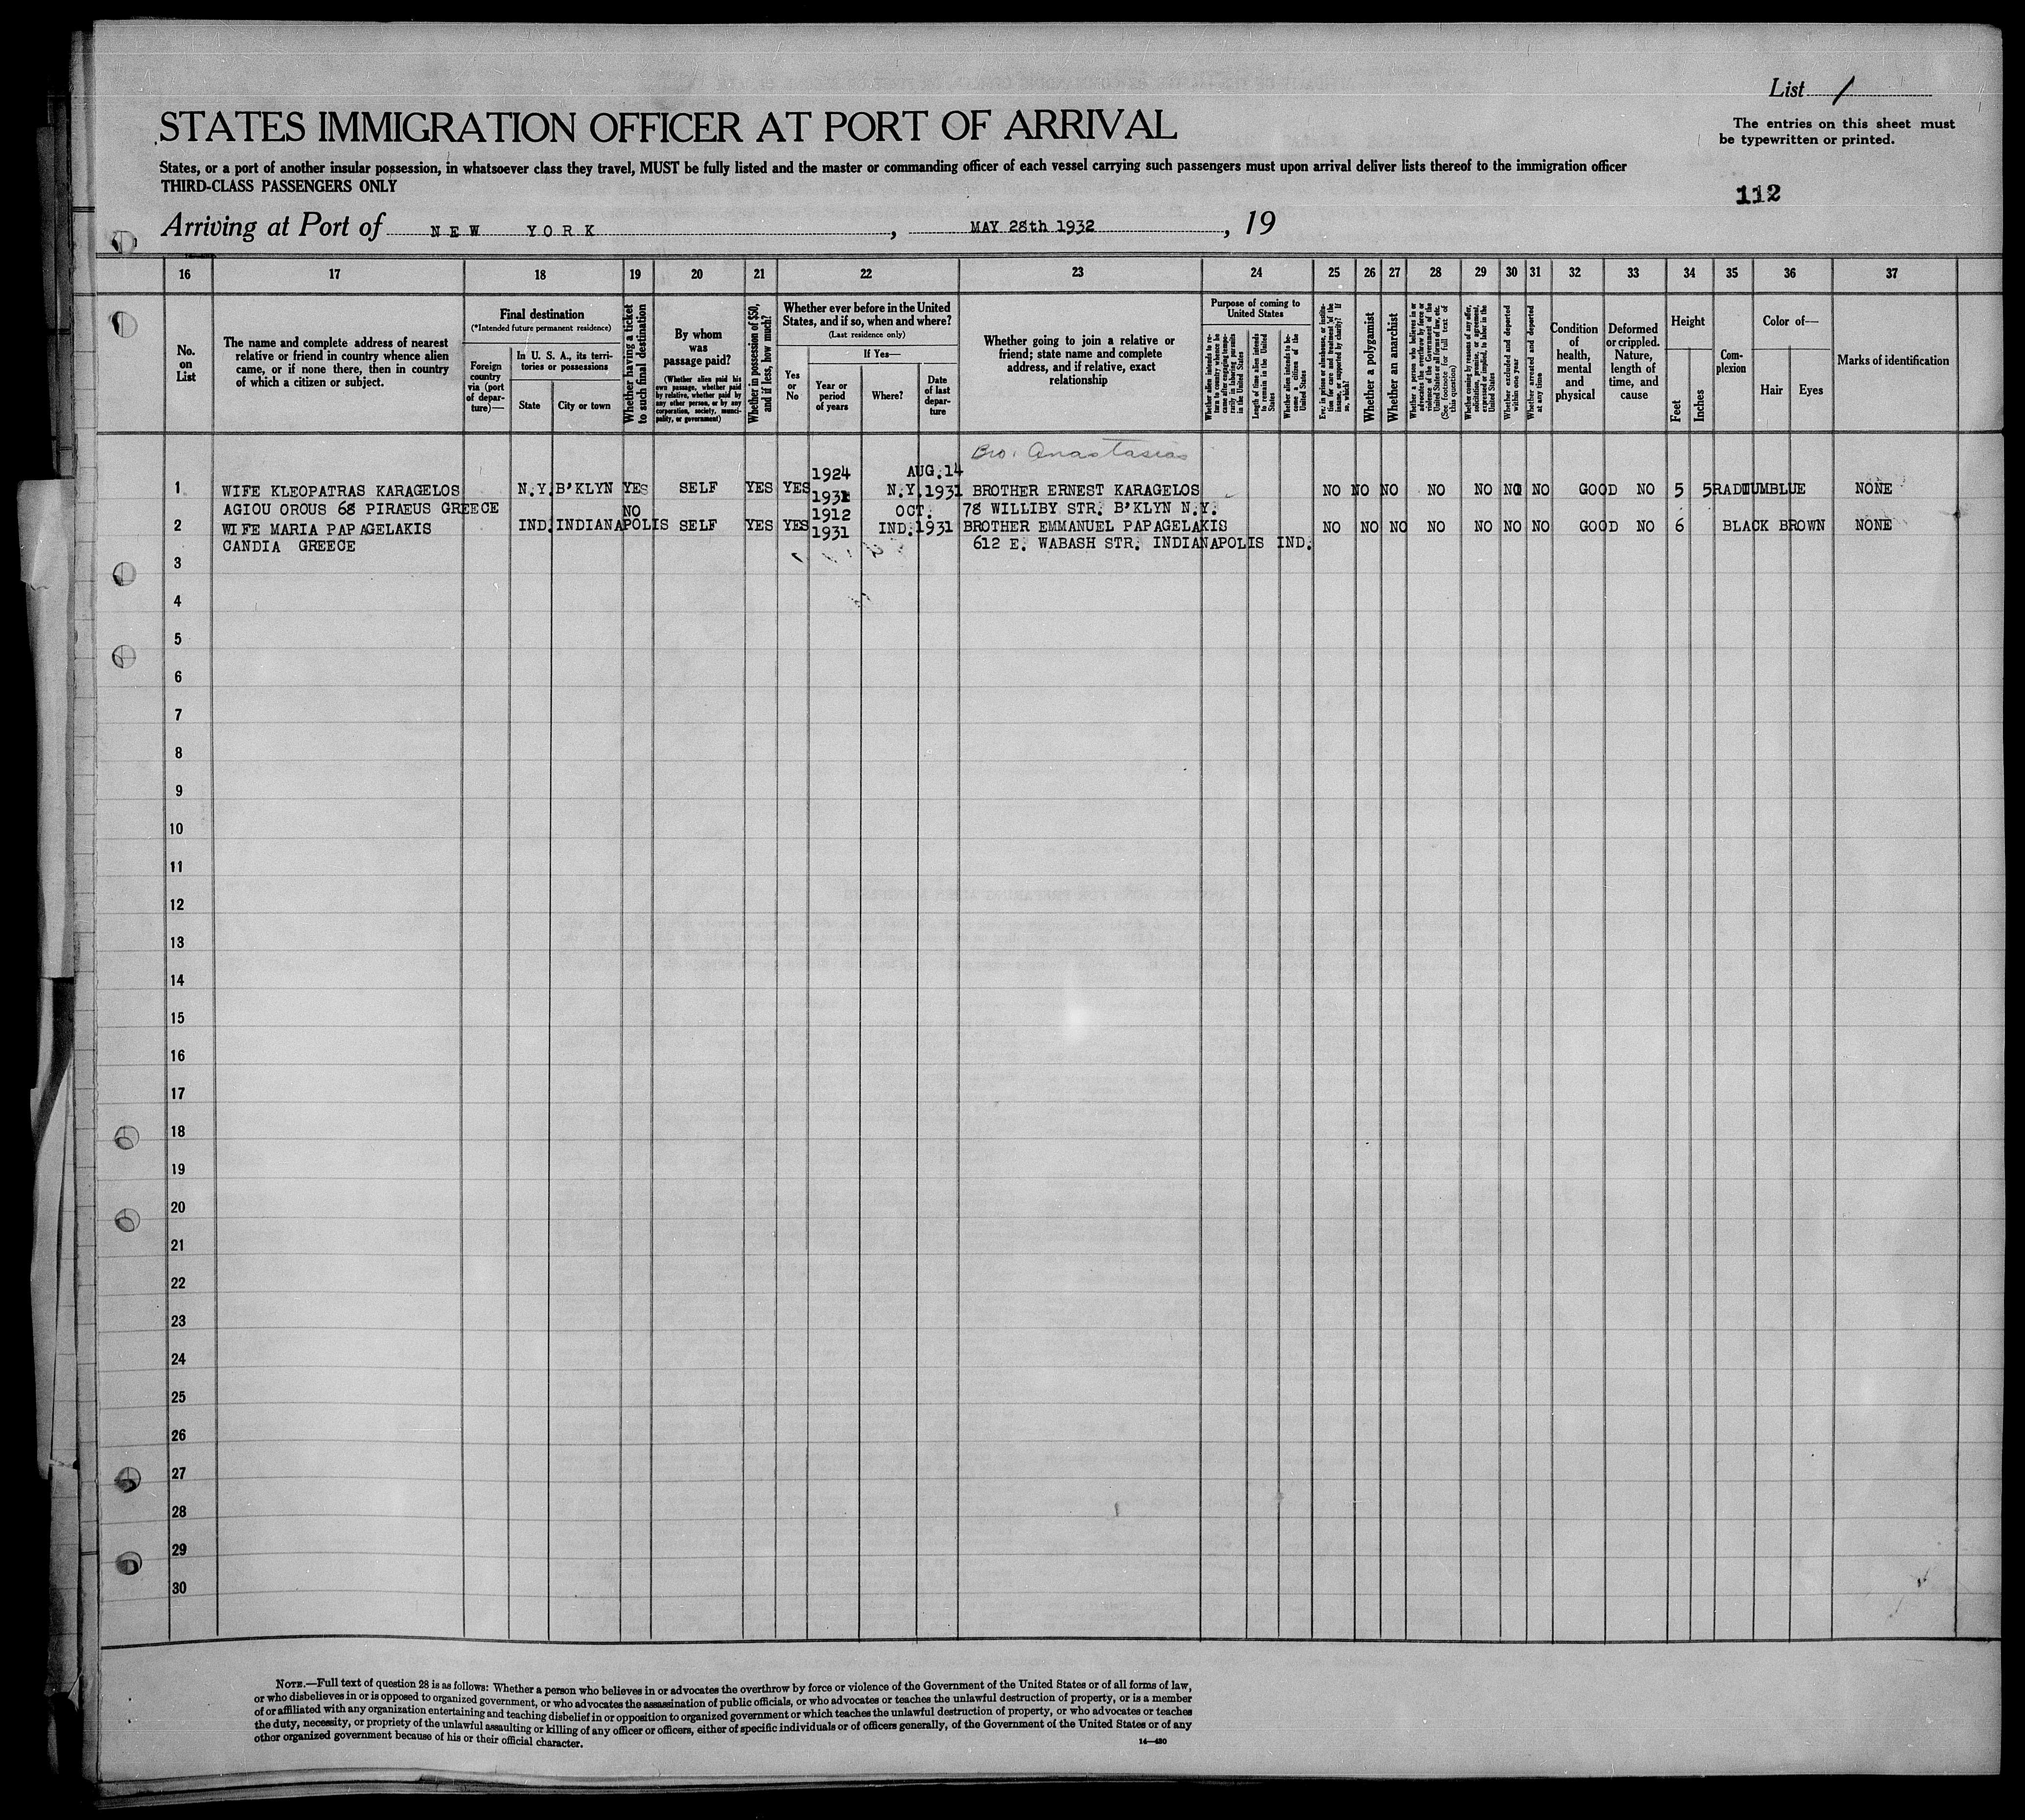 List 1
STATES IMMIGRATION OFFICER AT PORT OF ARRIVAL
The entries on this sheet must
be typewritten or printed.
States, or a port of another insular possession, in whatsoever class they travel, MUST be fully listed and the master or commanding officer of each vessel carrying such passengers must upon arrival deliver lists thereof to the immigration officer
THIRD-CLASS PASSENGERS ONLY
112
Arriving at Port of NEW YORK, MAY 28th 1932, 19
16 17 18 19 20 21 22 23 24 25 26 27 28 29 30 31 32 33 34 35 36 37
No.
on
List
The name and complete address of nearest
relative or friend in country whence alien
came, or if none there, then in country
of which a citizen or subject.
Final destination
(*Intended future permanent residence)
Foreign
country
via (port
of depar-
ture)—
In U. S. A., its terri-
tories or possessions
State
City or town
Whether having a ticket
to such final destination
By whom
was
passage paid?
(Whether alien paid his
own passage, whether paid
by relative, whether paid by
any other person, or by any
corporation, society, munici-
pality, or government)
Whether in possession of $50,
and if less, how much?
Whether ever before in the United
States, and if so, when and where?
(Last residence only)
Yes
or
No
If Yes—
Year or
period
of years
Where?
Date
of last
depar-
ture
Whether going to join a relative or
friend; state name and complete
address, and if relative, exact
relationship
Purpose of coming to
United States
Whether alien intends to re-
turn to country whence he
came after engaging tempo-
rarily in laboring pursuits
in the United States
Length of time alien intends
to remain in the United
States
Whether alien intends to be-
come a citizen of the
United States
Ever in prison or almshouse, or institu-
tion for care and treatment of the
insane, or supported by charity? If
so, which?
Whether a polygamist
Whether an anarchist
Whether a person who believes in or
advocates the overthrow by force or
violence of the Government of the
United States or all forms of law, etc.
(See footnote for full text of
this question)
Whether coming by reasons of any offer,
solicitation, promise, or agreement,
expressed or implied, to labor in the
United States
Whether excluded and deported
within one year
Whether arrested and deported
at any time
Condition
of
health,
mental
and
physical
Deformed
or crippled.
Nature,
length of
time, and
cause
Height
Feet
Inches
Com-
plexion
Color of—
Hair
Eyes
Marks of identification
Bro. Anastasias
1924 AUG.14
1 WIFE KLEOPATRAS KARAGELOS N.Y. B'KLYN YES SELF YES YES 1931 N.Y. 1931 BROTHER ERNEST KARAGELOS NO NO NO NO NO NO NO GOOD NO 5 5 BLUE NONE
AGIOU OROUS 68 PIRAEUS GREECE NO 1912 OCT. 78 WILLIBY STR. B'KLYN N.Y.
2 WIFE MARIA PAPAGELAKIS IND. INDIANAPOLIS SELF YES YES 1931 IND. 1931 BROTHER EMMANUEL PAPAGELAKIS NO NO NO NO NO NO NO GOOD NO 6 BLACK BROWN NONE
CANDIA GREECE 612 E. WABASH STR. INDIANAPOLIS IND.
3
4
5
6
7
8
9
10
11
12
13
14
15
16
17
18
19
20
21
22
23
24
25
26
27
28
29
30
NOTE.—Full text of question 28 is as follows: Whether a person who believes in or advocates the overthrow by force or violence of the Government of the United States or of all forms of law,
or who disbelieves in or is opposed to organized government, or who advocates the assassination of public officials, or who advocates or teaches the unlawful destruction of property, or is a member
of or affiliated with any organization entertaining and teaching disbelief in or opposition to organized government or which teaches the unlawful destruction of property, or who advocates or teaches
the duty, necessity, or propriety of the unlawful assaulting or killing of any officer or officers, either of specific individuals or of officers generally, of the Government of the United States or of any
other organized government because of his or their official character.
14—430